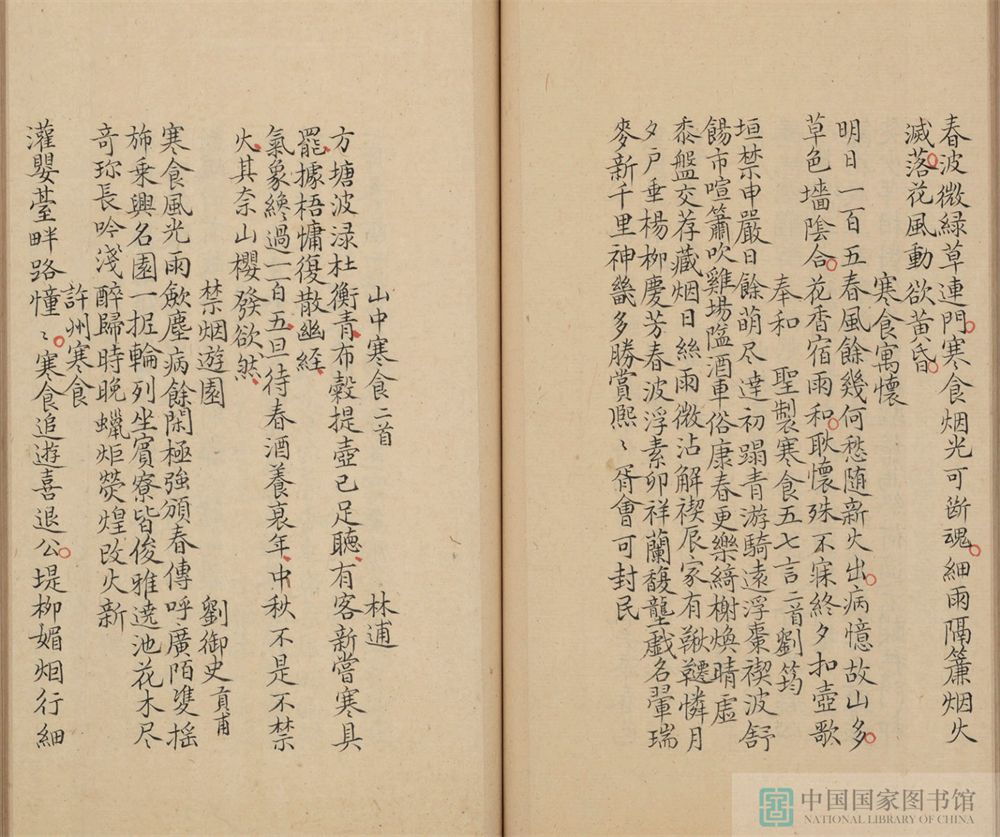 春波微緑草連門寒食烟光可断魂細雨隔簾烟火
滅落花風動欲黄昏
寒食寓懷
明日一百五春風餘幾何愁随新火出病憶故山多
草色墻陰合花香宿雨和耿懷殊不寐終夕扣壺歌
奉和 聖製寒食五七言二首劉筠
垣禁申嚴日餘萌尽達初蹋青游騎遠浮棗禊波舒
餳市喧簫吹雞場隘酒車俗康春更樂綺榭煥晴虚
黍盤交荐藏烟日絲雨微沾解禊辰家有鞦韆憐月
夕戸垂楊柳慶芳春波浮素卵祥蘭馥壟戯名翬瑞
麥新千里神畿多勝賞熙〻胥會可封民
山中寒食二首 林逋
方塘波渌杜衡青布穀提壺已足聴有客新嘗寒具
罷據梧慵復散幽經
氣象纔過一百五旦待春酒養衰年中秋不是不禁
火其奈山櫻發欲然
禁烟遊園 劉御史貢甫
寒食風光雨歛塵病餘閑極強頒春傳呼廣陌雙摇
斾乗興名園一捉輪列坐賓寮皆俊雅遶池花木尽
竒珎長吟淺醉歸時晚蠟炬熒煌改火新
許州寒食
灌嬰臺畔路憧〻寒食追遊喜退公堤柳媚烟行細
中国国家图书馆
NATIONAL LIBRARY OF CHINA